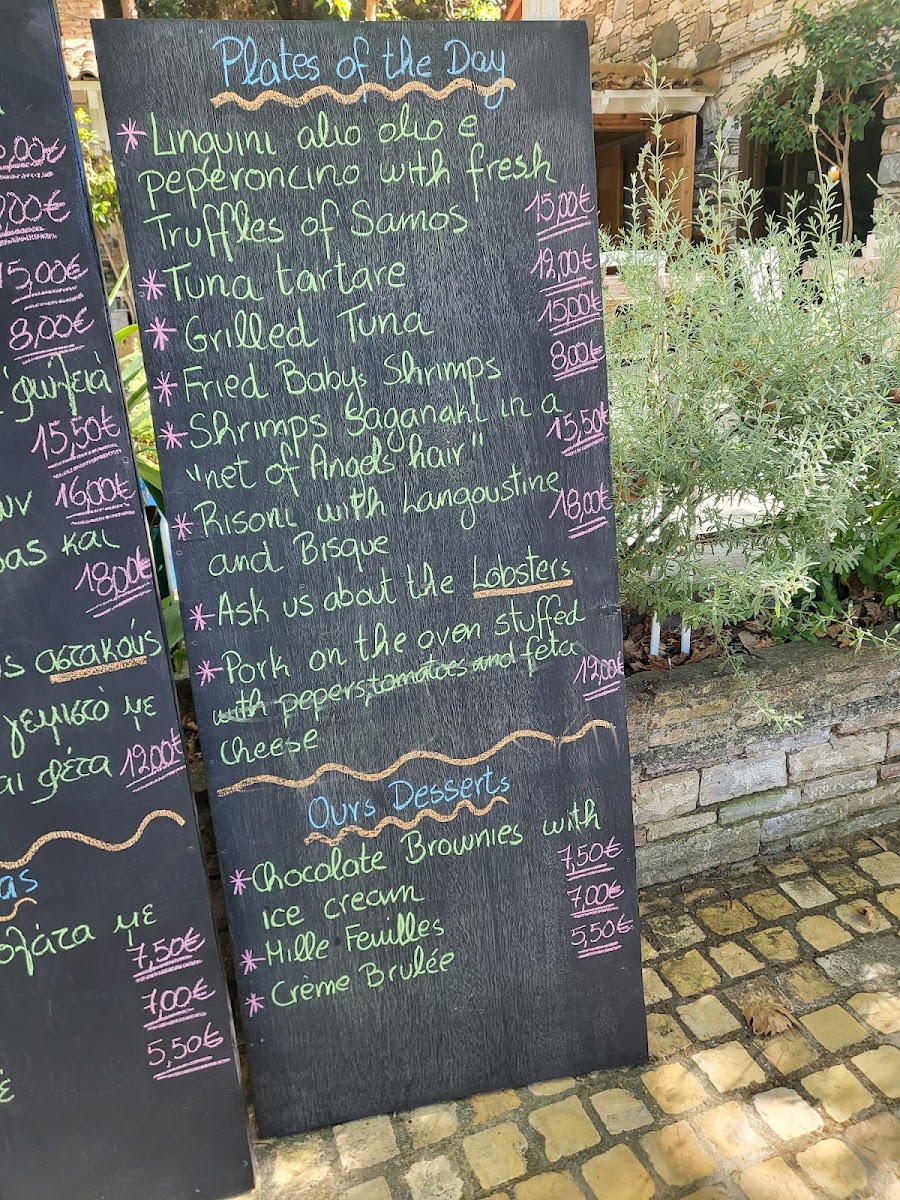 2,00€
9,00€
15,00€
8,00€
φωλειά
15,50€
16,00€
και
18,00€
αστακούς
γεμιστό με
φέτα 12,00€
με
7,50€
7,00€
5,50€
Plates of the Day
* Linguini alio olio e
peperoncino with fresh
Truffles of Samos 15,00€
* Tuna tartare 12,00€
* Grilled Tuna 15,00€
* Fried Baby Shrimps 8,00€
* Shrimps Saganaki in a
"net of Angels hair" 15,50€
* Risoni with Langoustine
and Bisque 18,00€
* Ask us about the Lobsters
* Pork on the oven stuffed
with pepers, tomatoes and feta
cheese 12,00€
Ours Desserts
* Chocolate Brownies with
ice cream 7,50€
* Mille Feuilles 7,00€
* Crème Brulée 5,50€